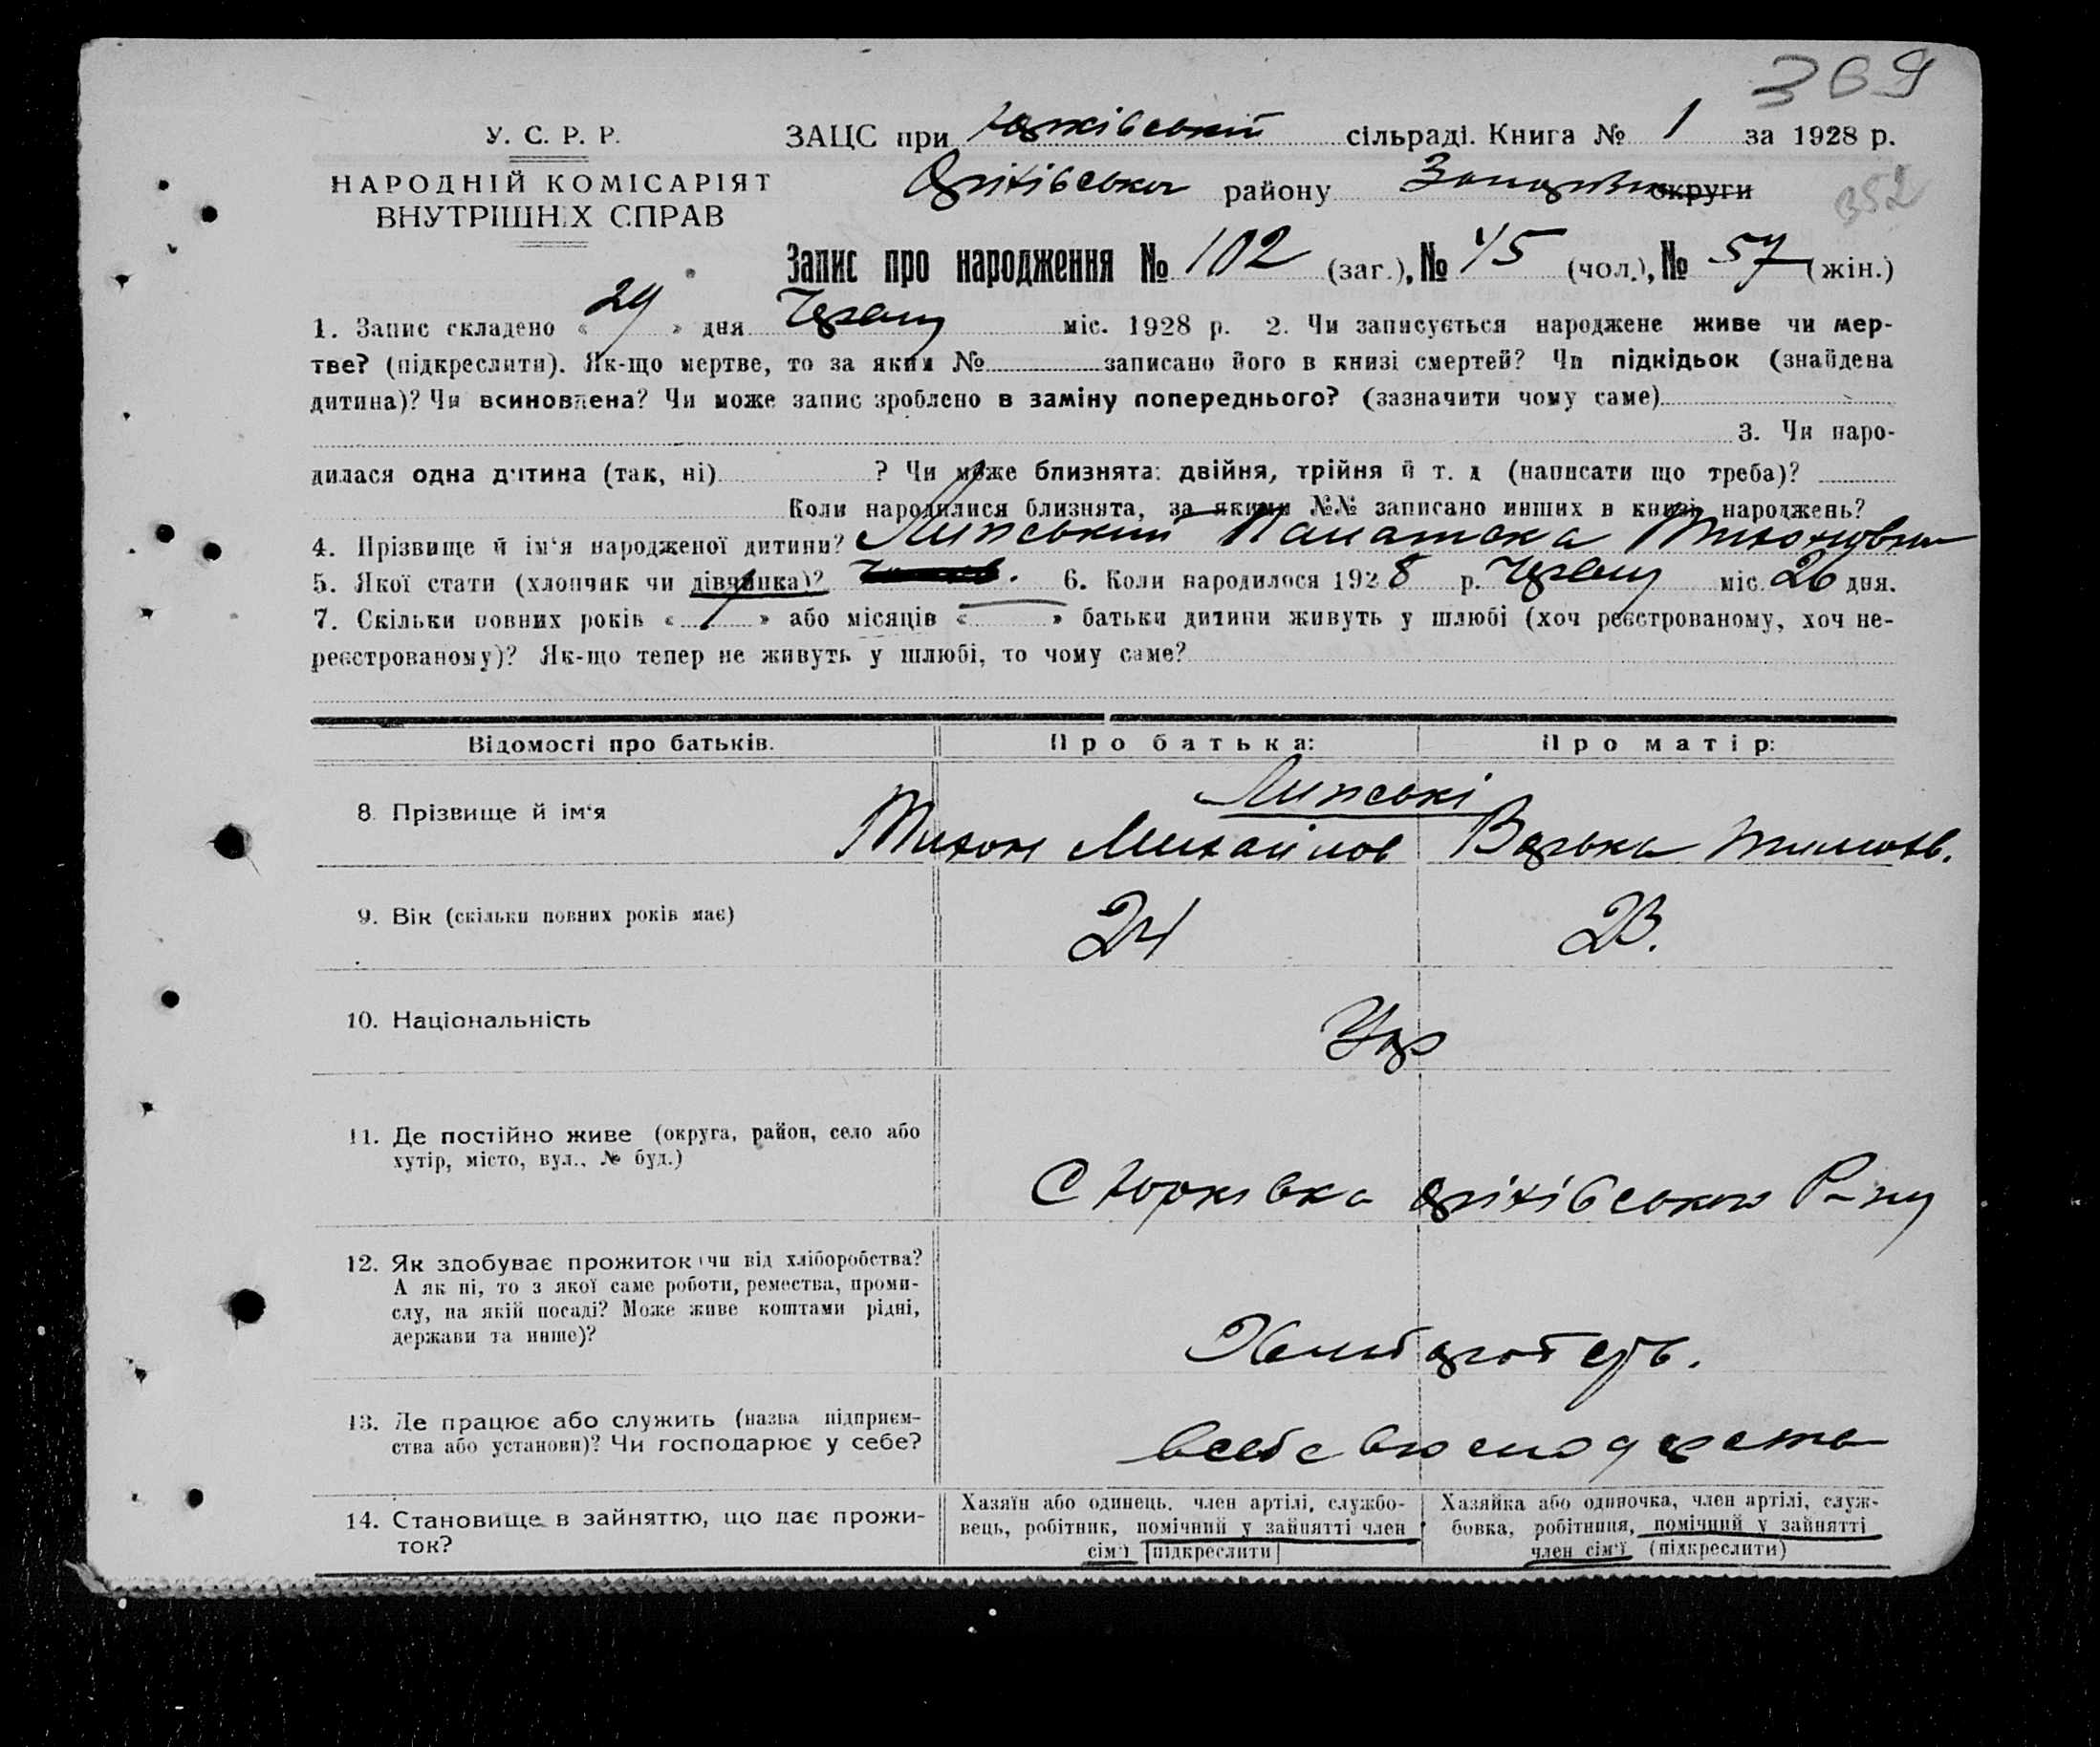 369
У. С. Р. Р.
НАРОДНІЙ КОМІСАРІЯТ
ВНУТРІШНІХ СПРАВ
ЗАЦС при Юрківській сільраді. Книга № 1 за 1928 р.
Оріхівського району округи
352
Запис про народження № 102 (заг.), № 45 (чол.), № 57 (жін.)
1. Запис складено « 29 » дня міс. 1928 р. 2. Чи записується народжене живе чи мер-
тве? (підкреслити). Як-що мертве, то за яким № записано його в книзі смертей? Чи підкідьок (знайдена
дитина)? Чи всиновлена? Чи може запис зроблено в заміну попереднього? (зазначити чому саме)
3. Чи наро-
дилася одна дитина (так, ні) ? Чи може близнята: двійня, трійня й т. д (написати що треба)?
Коли народилися близнята, за якими №№ записано инших в книзі народжень?
4. Прізвище й ім‘я народженої дитини? Липський Тихоновна
5. Якої стати (хлопчик чи дівчинка)? 6. Коли народилося 1928 р. міс. 26 дня.
7. Скільки повних років « 1 » або місяців « » батьки дитини живуть у шлюбі (хоч реєстрованому, хоч не-
реєстрованому)? Як-що тепер не живуть у шлюбі, то чому саме?
Відомості про батьків. Про батька: Про матір:
Липські
8. Прізвище й ім‘я Тихон Михайлов Варька Тимохв.
9. Вік (скільки повних років має) 24 23.
10. Національність Укр
11. Де постійно живе (округа, район, село або
хутір, місто, вул., № буд.)
С Юрківка Оріхівського Р-ну
12. Як здобуває прожиток чи від хліборобства?
А як ні, то з якої саме роботи, ремества, проми-
слу, на якій посаді? Може живе коштами рідні,
держави та инше)?
13. Де працює або служить (назва підприєм-
ства або установи)? Чи господарює у себе?
14. Становище в зайняттю, що дає прожи-
ток?
Хазяїн або одинець, член артілі, службо-
вець, робітник, помічний у зайнятті член
сім‘ї [підкреслити]
Хазяйка або одиночка, член артілі, служ-
бовка, робітниця, помічний у зайнятті
член сім‘ї (підкреслити)